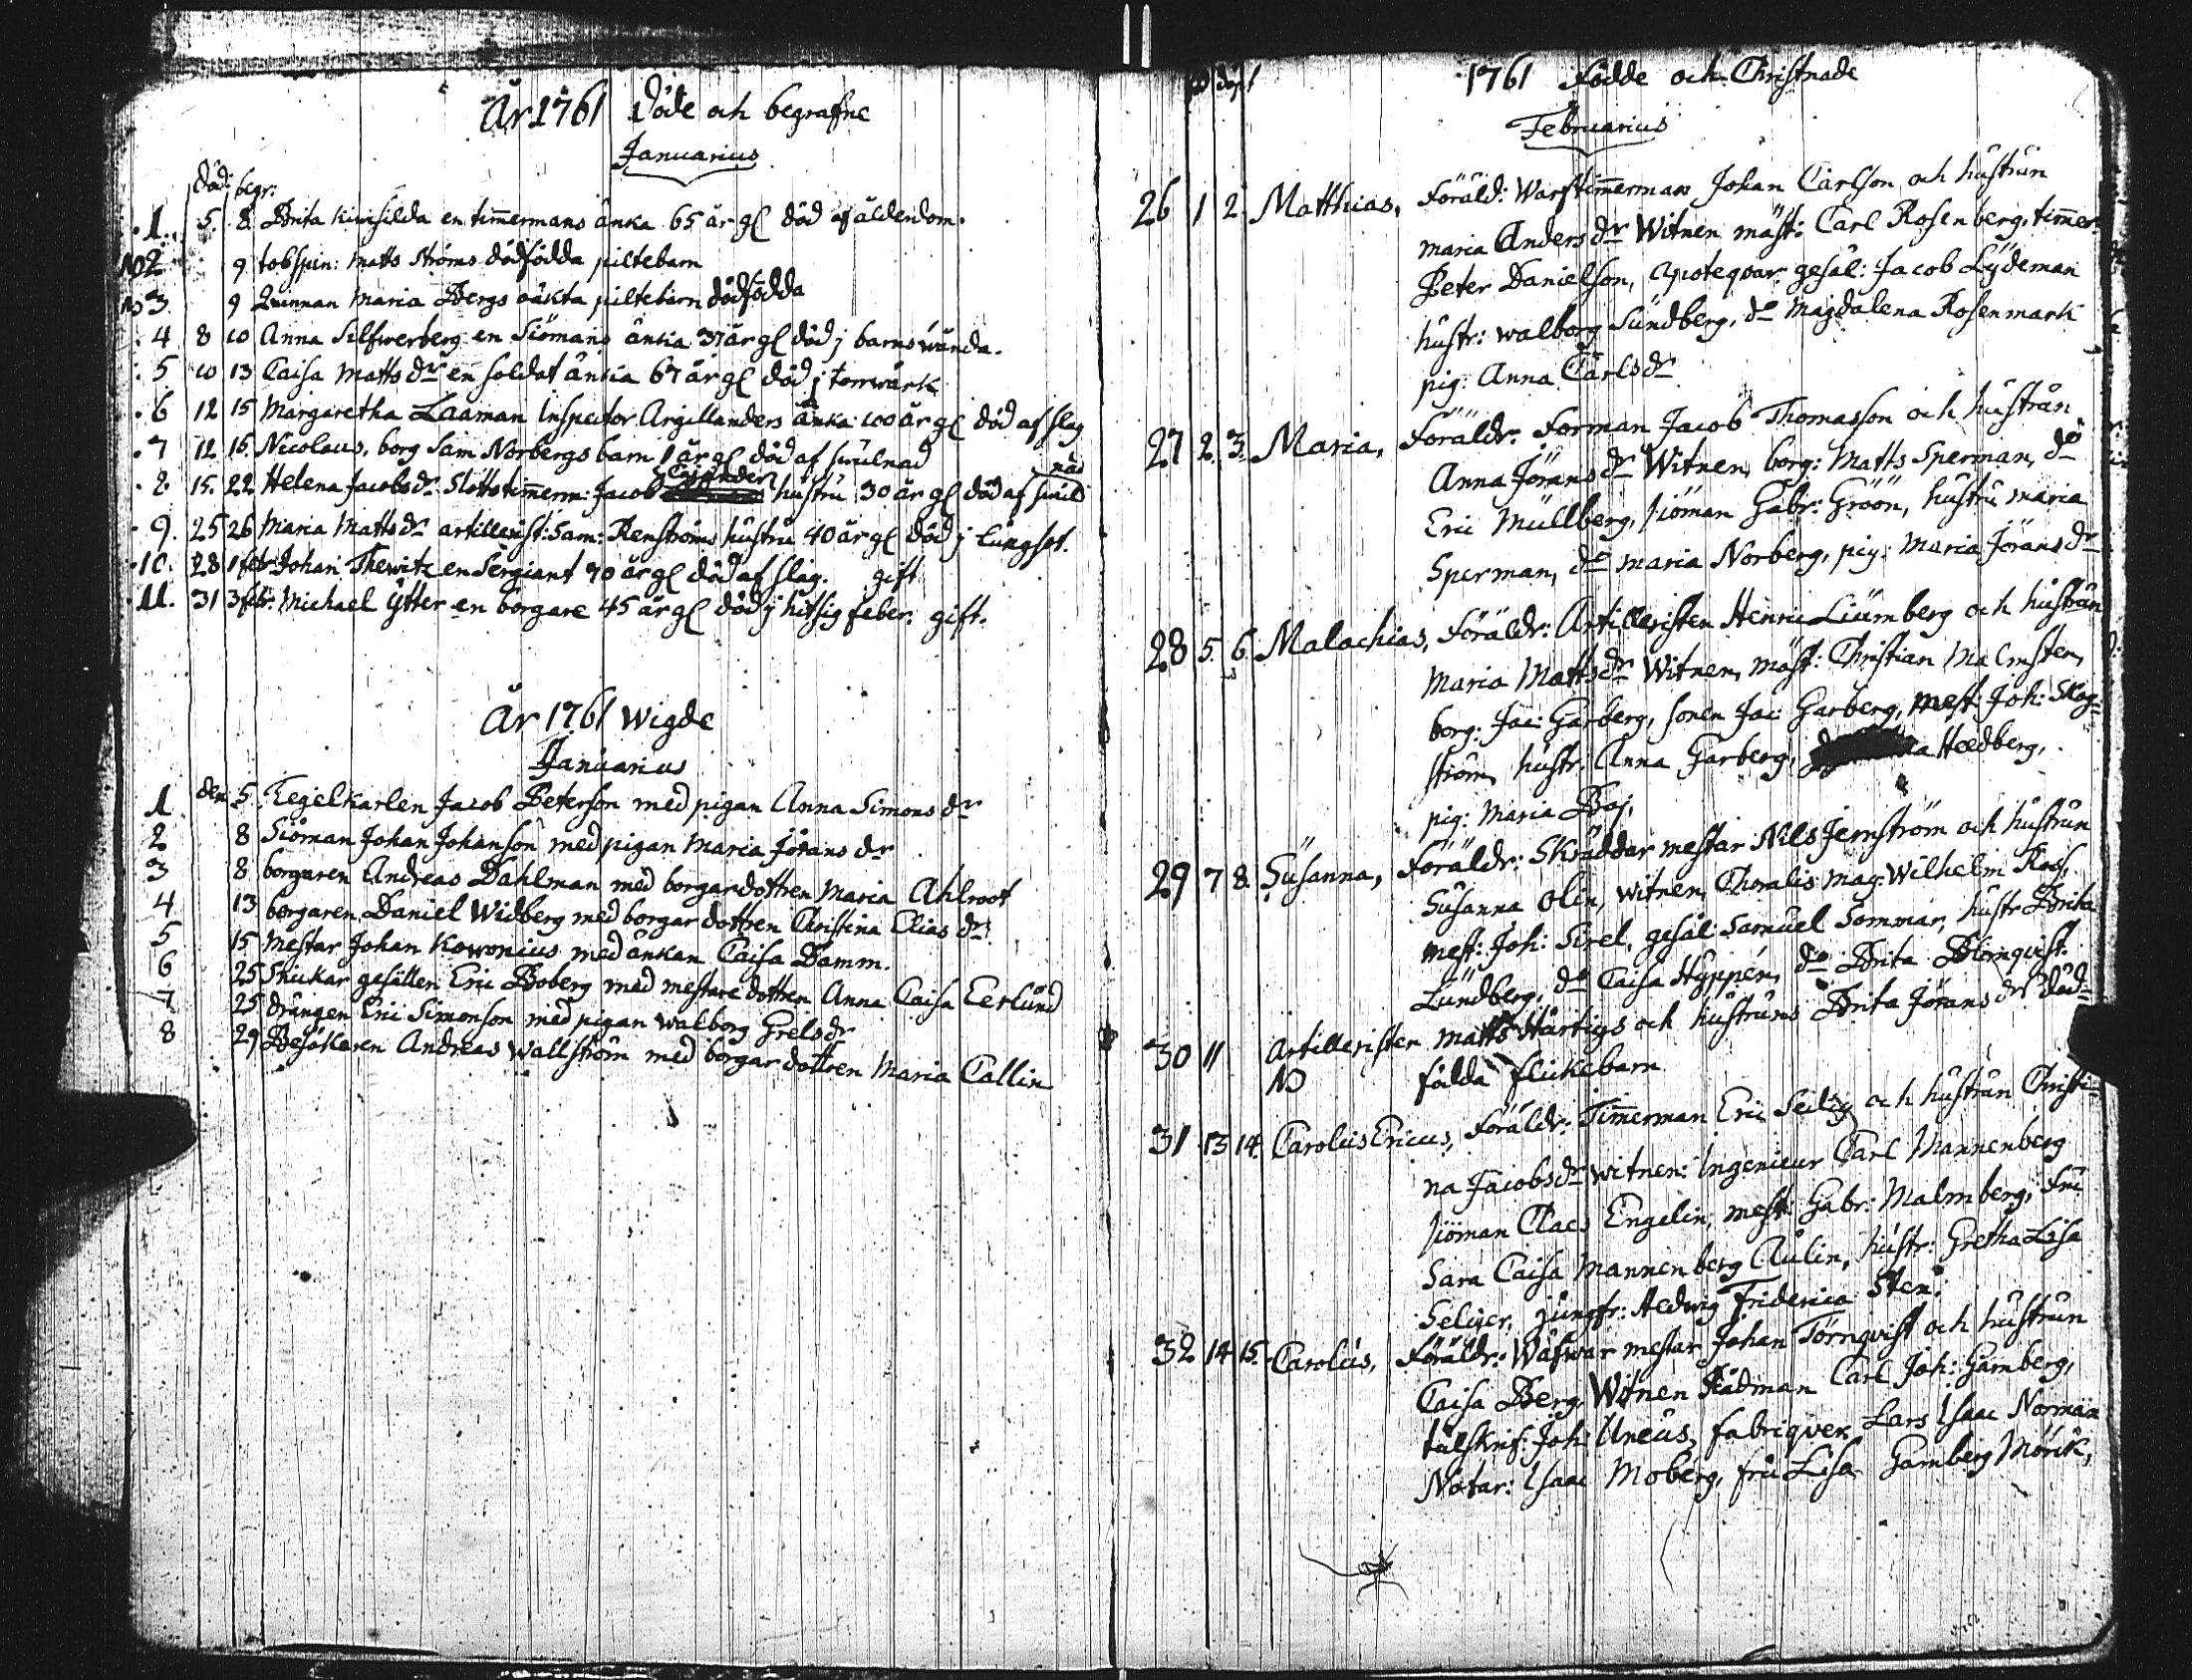 År 1761 Döde och begrafne
Januarius
död: begr:
1. 5. 8. Brita Kivisilda en timmermans änka 65 år gl död af ålderdom.
No 2 9 tobspin: Matts Ströms dödfödda piltebarn
No 3. 9 Quinnan Maria Bergs oäkta piltebarn dödfödda
4 8 10 Anna Silfwerberg en Siömans änka 37 år gl död j barnswånda.
5 10 13 Caisa Matts dr en soldat änkia 67 år gl död j torrwärk
6 12 15 Margaretha Laaman Inspector Argillanders änka 100 år gl död af slag
7 12 15. Nicolaus, borg Sam Norbergs barn 1 år gl död af swulnad
8. 15. 22 Helena Jacobsdr Slottstimmerm: Jacob Cajander hustru 30 år gl död af swulnad
9. 25 26 Maria Matts dr artillerist: Sam: Renströms hustru 40 år gl död j lungsot.
10. 28 1 febr Johan Thewitz en Sergiant 70 år gl död af slag. gift
11. 31 3 febr. Michael Ytter en borgare 45 år gl död j hitsig feber. gift.
År 1761 Wigde
Januarius
1 den 5. Tegelkarlen Jacob Peterson med pigan Anna Simons dr
2 8 Siöman Johan Johanson med pigan Maria Jörans dr
3 8 borgaren Andreas Dahlman med borgardottren Maria Ahlroot
4 13 borgaren Daniel Widberg med borgar dottren Christina Elias dr
5 15 Mestar Johan Kowonius med änkan Caisa Damm.
6 25 Snickar gesällen Eric Boberg med mestare dottren Anna Caisa Eerlund
7 25 drängen Eric Simonson med pigan Walborg Grelsdr
8 29 Besökaren Andreas Wallström med borgar dottren Maria Callin
döpt
1761 Födde och Christnade
Februarius
26 1 2 Matthias, Föräld: Warftimmerman Johan Carlson och hustrun
Maria Anders dr Witnen mäst: Carl Rosenberg, timmer
Peter Danielson, apoteqvar gesäl: Jacob Lydeman
hustr: Walborg Sundberg, do Magdalena Rosenmark
pig: Anna Carlsdr
27 2. 3. Maria, Föräldr: Forman Jacob Thomasson och hustrun
Anna Jörans dr Witnen, borg: Matts Sperman, do
Eric Mullberg, siöman Gabr: Gröön, hustru Maria
Sperman, do Maria Norberg, pig: Maria Jörans dr
28 5. 6. Malachias, Föräldr: Artilleristen Henric Liumberg och hustrun
Maria Matts dr Witnen, mäst: Christian Malmsten,
borg: Jac: Garberg, sonen Jac: Garberg, mest: Joh: Skog=
ström, hustr. Anna Garberg, Heedberg,
pig: Maria Boj,
29 7 8. Susanna, Föräldr: Skräddar mestar Nils Jernström och hustrun
Susanna Olin, witnen, Choralis mag: Wilhelm Ross,
mest: Joh: Sirel, gesäl: Samuel Sommar, hustr Brita
Lundberg, do Caisa Hyppén, do Brita Blomqvist.
30 11 Artilleristen Matts Hartigs och hustruns Brita Jörans dr död=
No födda flickebarn
31 13 14. Carolus Ericus, Föräldr: Timmerman Eric Selig och hustrun Christi=
na Jacobsdr Witnen: Ingenieur Carl Mannenberg
siöman Claes Engelin, mest: Gabr: Malmberg, fru
Sara Caisa Mannenberg Aulin, hustr: Gretha Lisa
Selijer, jungfr: Hedwig Friderica Sten.
32 14 15. Carolus, Föräldr: Wäfwar mestar Johan Törnqvist och hustrun
Caisa Berg, Witnen Rådman Carl Joh: Gamberg,
tulskrif: Joh: Uneus, fabriqver Lars Isaac Norman
Notar: Isaac Moberg, fru Lisa Gamberg Mörik,